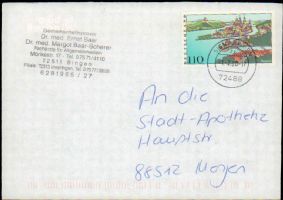 Gemeinschaftspraxis
Dr. med. Ernst Baar
Dr. med. Margot Baar-Scherer
Fachärzte für Allgemeinmedizin
72511 Bingen
6281955 / 27
110
72488
An die
Stadt-Apotheke
Hauptstr.
88512 Mengen